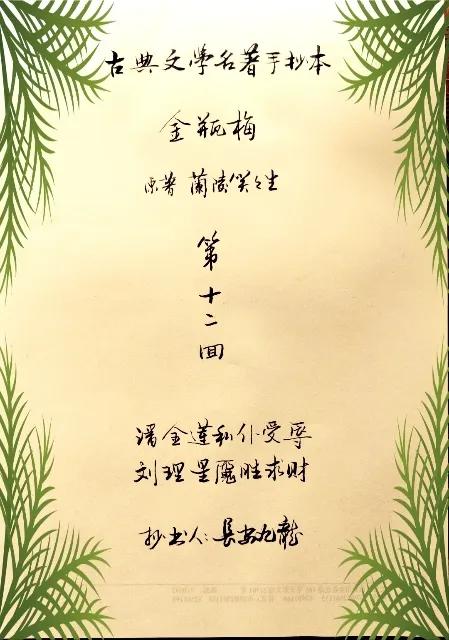 古典文學名著手抄本
金瓶梅
原著 蘭陵笑々生
第十二回
潘金蓮私仆受辱
刘理星魘胜求财
抄书人:長安九龍